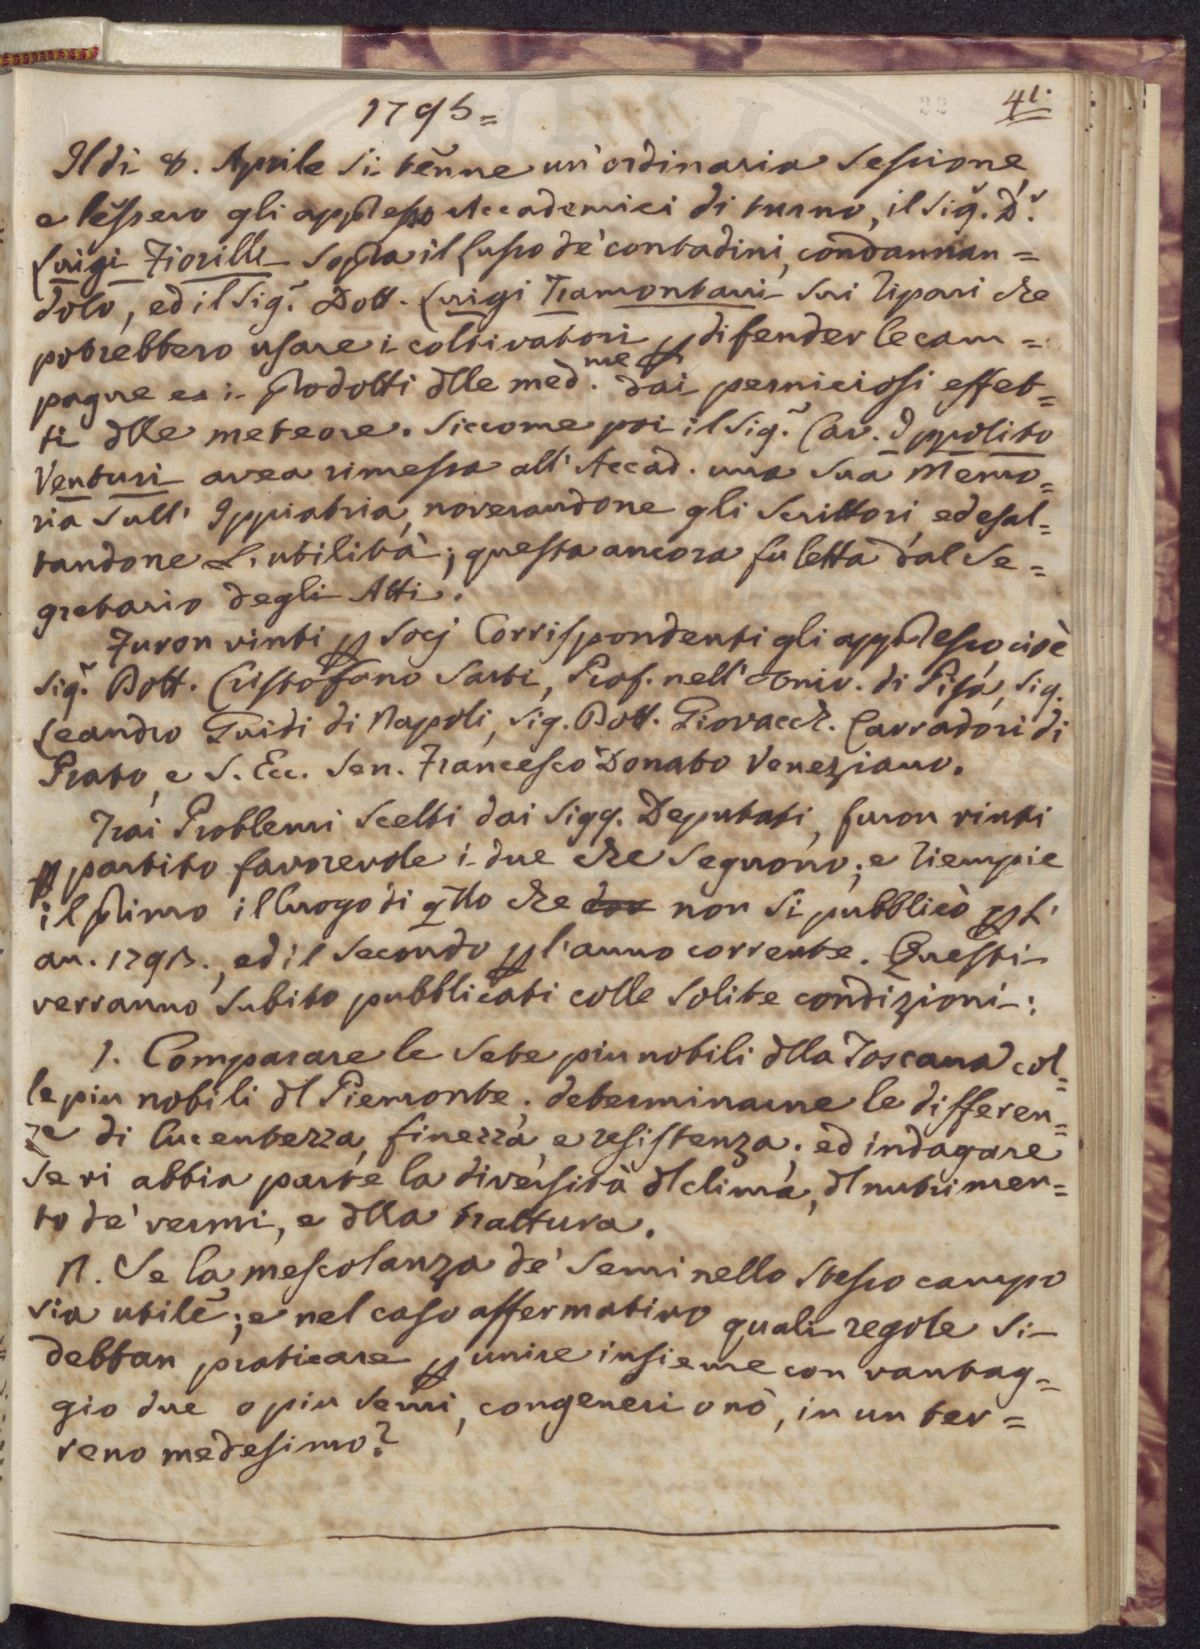 1795=
41.
Il dì 8. Aprile si tenne un'ordinaria Sessione,
e lessero gli appresso Accademici di turno, il Sig. D.r
Luigi Fiorilli sopra il Lusso de' contadini, condannan=
dolo, ed il Sig. Dott. Luigi Tramontani sui ripari che
potrebbero usare i coltivatori p difender le cam=
pagne e i prodotti dlle med.me dai perniciosi effet=
ti dlle meteore. Siccome poi il Sig. Cav. Ippolito
Venturi avea rimessa all'Accad. una sua Memo=
ria sull'Ippiatria, noverandone gli Scrittori, ed esal=
tandone l'utilità; questa ancora fu letta dal Se=
gretario degli Atti.
Furon vinti p Socj Corrispondenti gli appresso cioè
Sig. Dott. Cristofano Sarti, Prof. nell'Univ. di Pisa, Sig.
Leandro Guidi di Napoli, Sig. Dott. Giovacch. Carradori di
Prato, e S. Ecc. Sen. Francesco Donato Veneziano.
Trai Problemi scelti dai Sigg. Deputati, furon vinti
p partito favorevole i due che seguono; e riempie
il primo il luogo di qllo che non si pubblicò p l'
an. 1793., ed il secondo p l'anno corrente. Questi
verranno subito pubblicati colle solite condizioni:
I. Comparare le sete piu nobili dlla Toscana col=
le piu nobili dl Piemonte; determinarne le differen=
ze di lucentezza, finezza, e resistenza; ed indagare
se vi abbia parte la diversità dl clima, dl nutrimen=
to de' vermi, e dlla trattura.
II. Se la mescolanza de' semi nello stesso campo
sia utile; e nel caso affermativo quali regole si
debban praticare p unire insieme con vantag=
gio due o piu semi, congeneri o nò, in un ter=
reno medesimo?